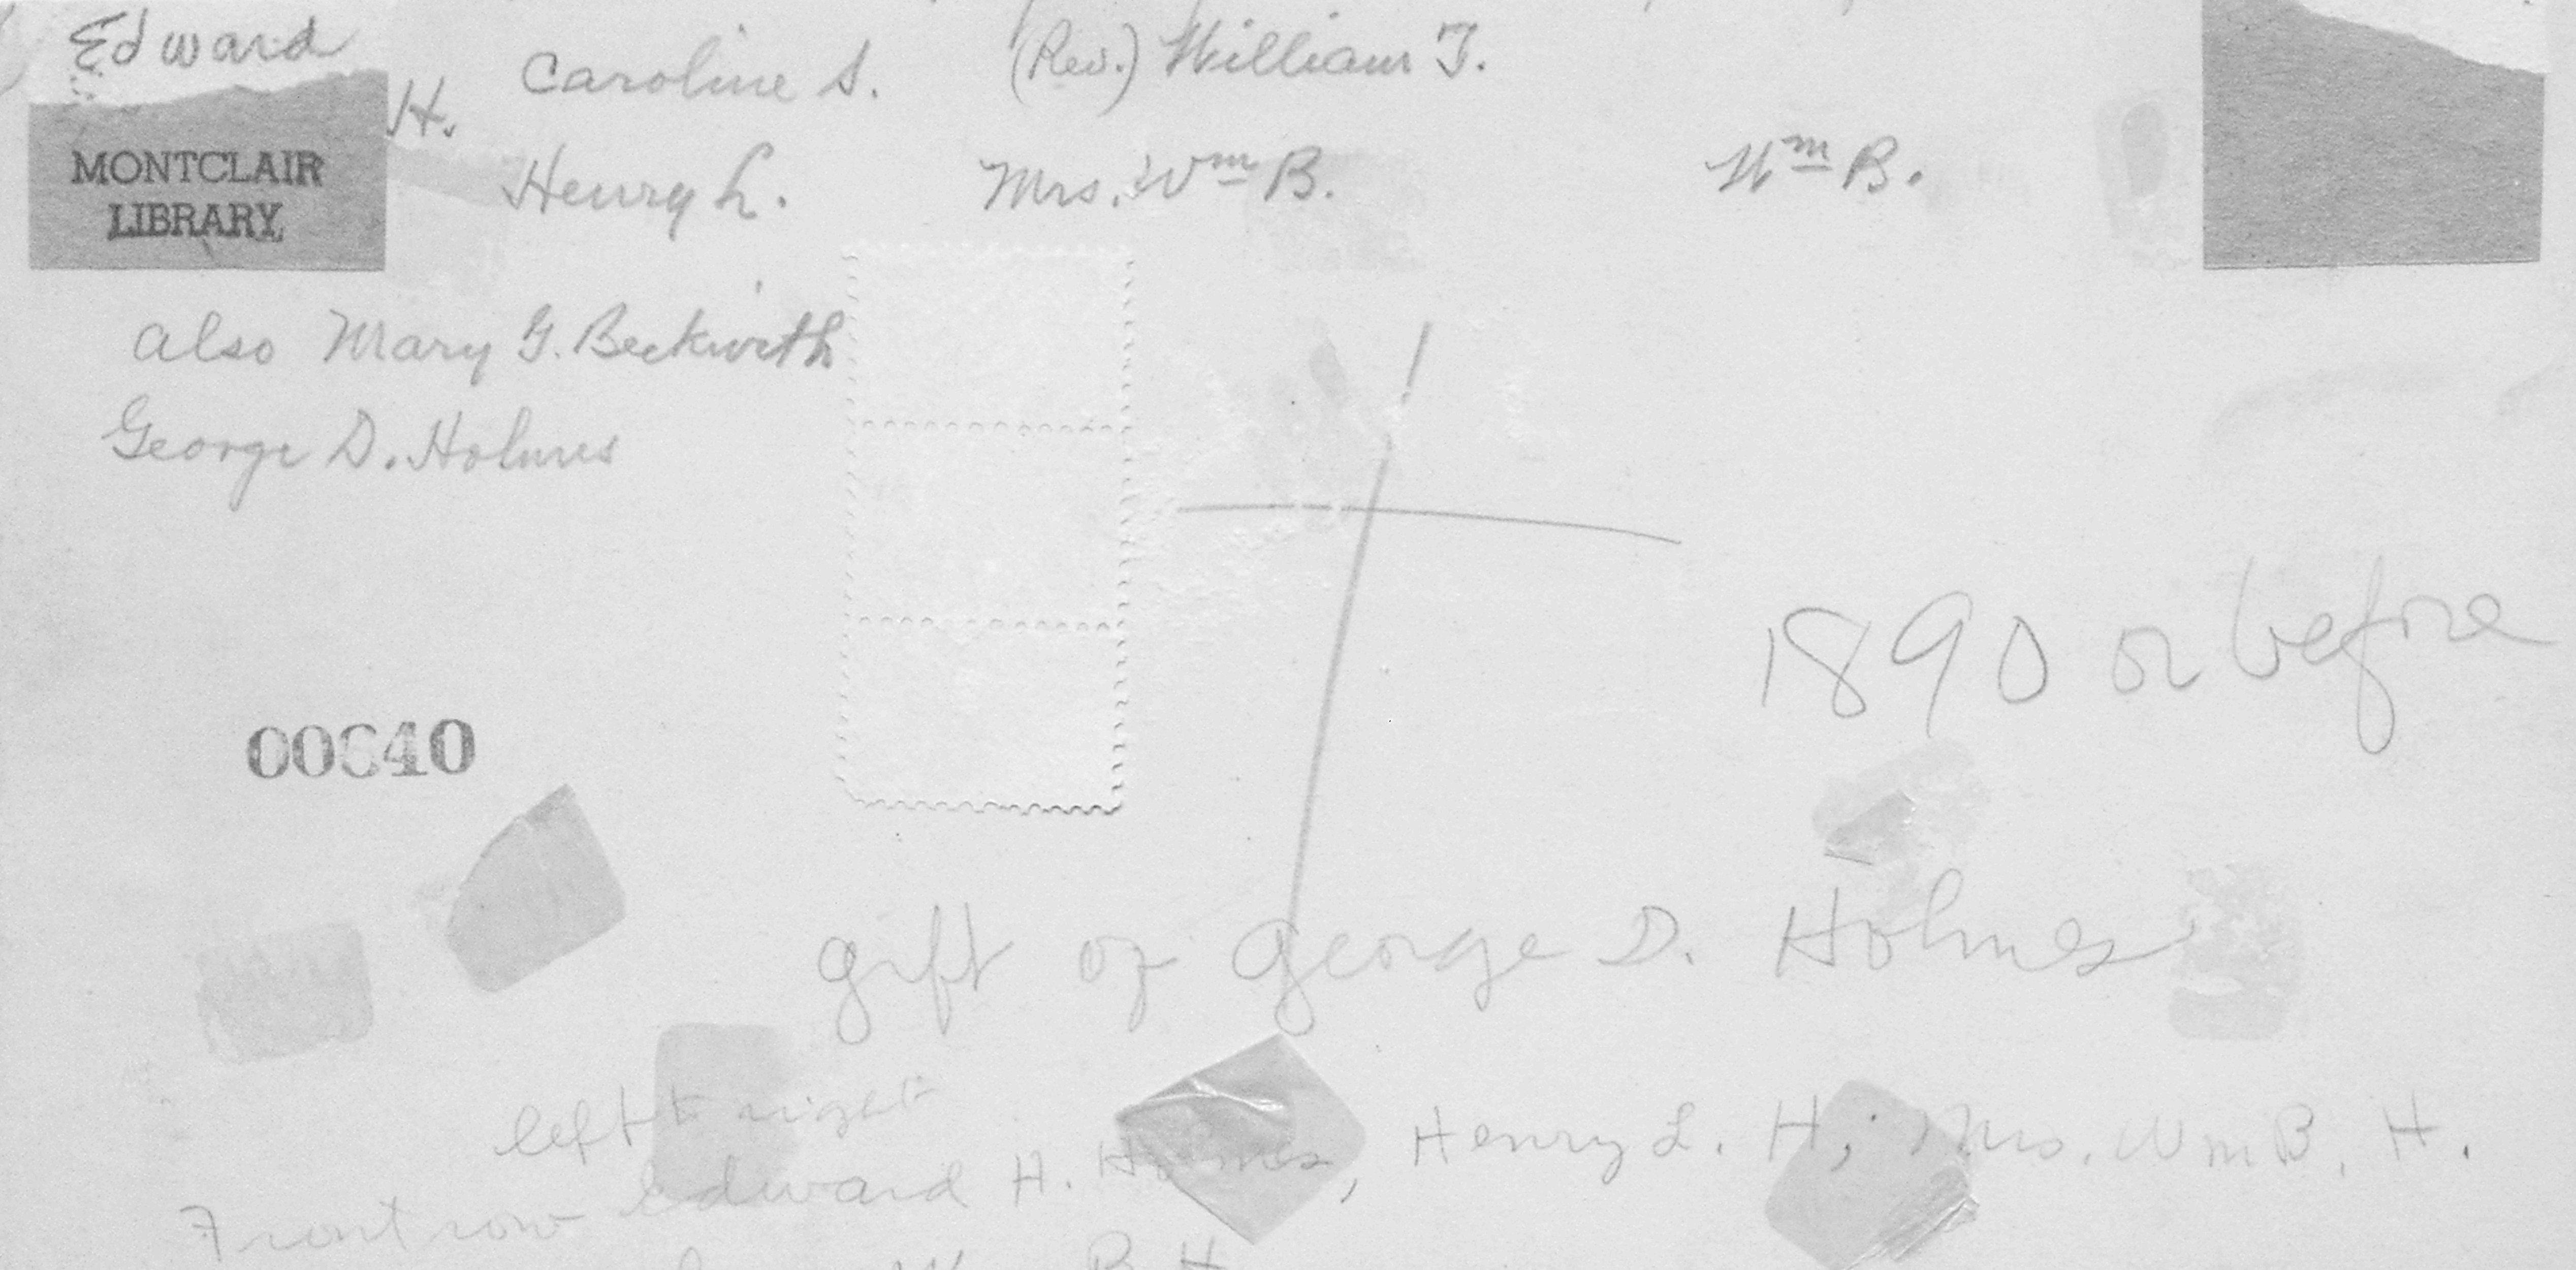 Edward
H.
Caroline S. (Rev.) William T.
Henry L. Mrs. Wm B. Wm B.
MONTCLAIR
LIBRARY
also Mary G. Beckwith
George D. Holmes
1890 or before
00640
gift of George D. Holmes
left to right
Front row Edward H. Holmes, Henry L. H; Mrs. Wm B. H.
B. H